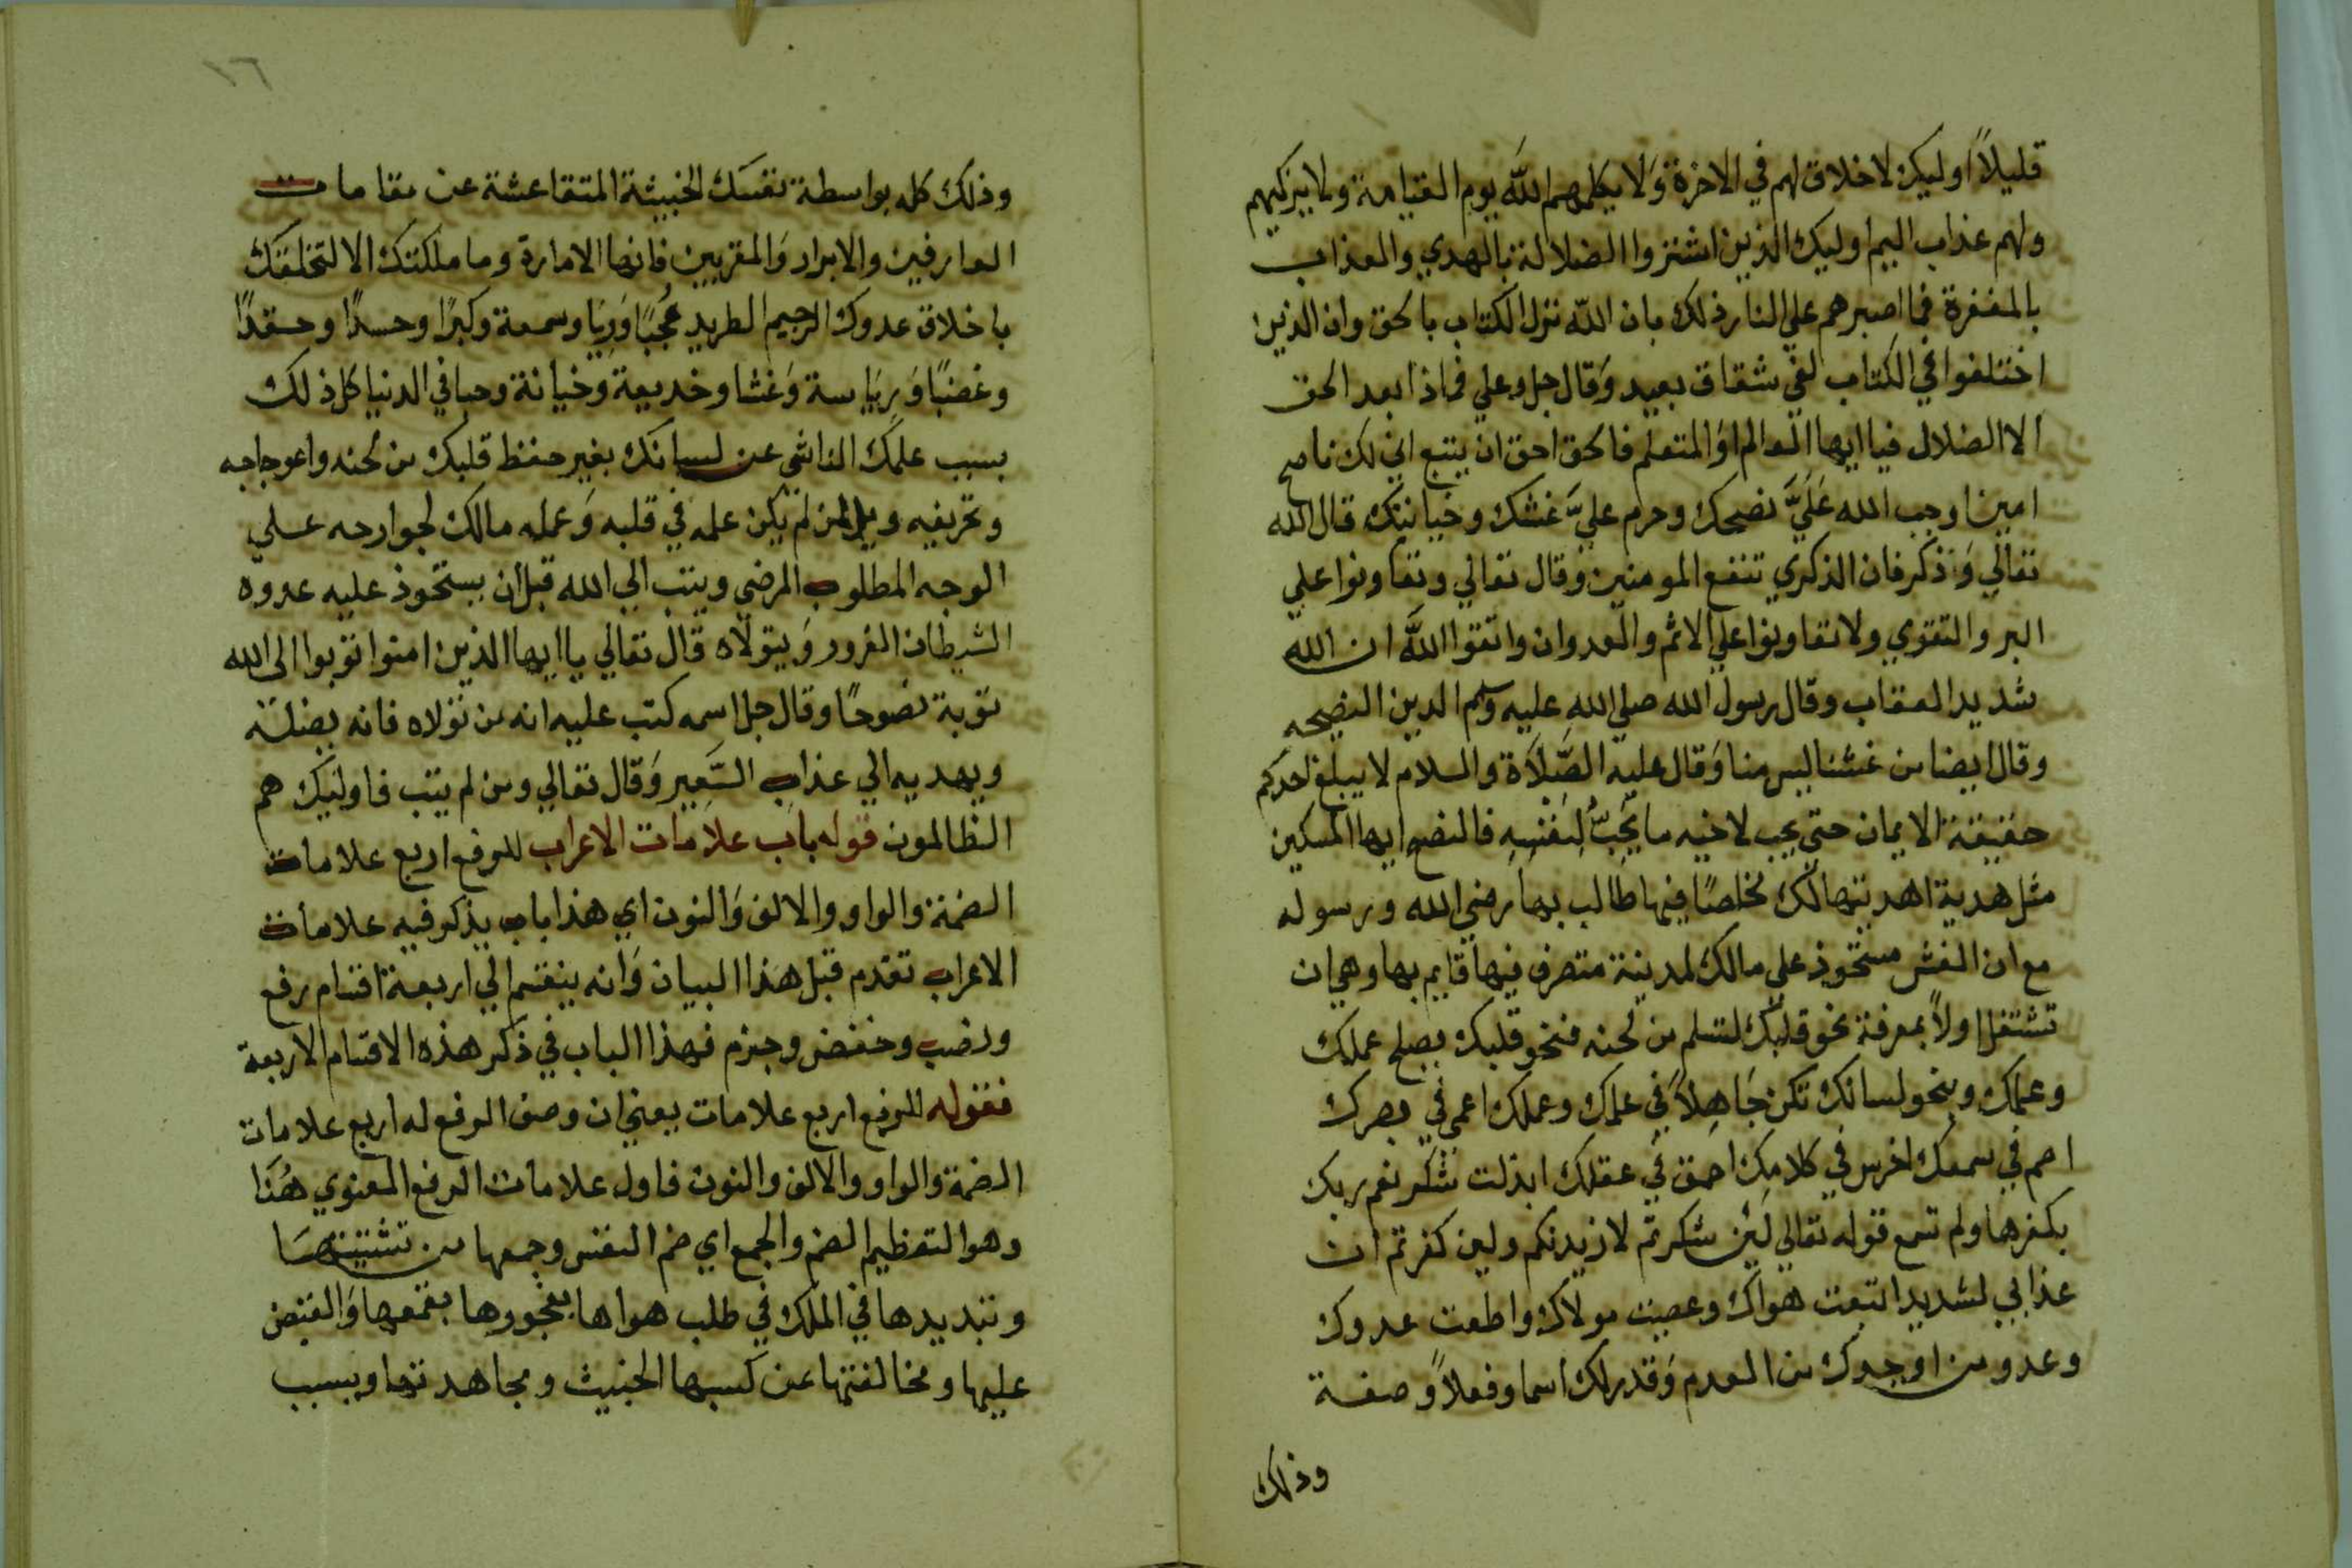 قليلاً اوليك لا خلاق لهم في الاخرة وَلا يكلمهم اللَّه يوم القيامة ولا يزكيهم
ولهم عذاب اليم اوليك الذين اشتروا الضلالة بالهدي والعذاب
بالمغفرة فما اصبرهم علي النار ذلك بان اللّه نزل الكتاب بالحق وان الذين
اختلفوا في الكتاب لفي شقاق بعيد وَقال جل وعلي فماذا بعد الحق
الا الضلال فيا ايها العالم اوَ المتعلم فالحق احق ان يتبع اني لك ناصح
امين اوجب الله عَلَيَّ نصحك وحرم عليَّ غشك وخيانتك قال الله
تعالي وَذكر فان الذكري تنفع المومنين وَقال تعالي وتعاونوا علي
البر والتقوي ولا تعاونوا علي الاثم والعدوان واتقوا اللَّه ان الله
شديد العقاب وقال رسول الله صلي الله عليه وسلم الدين النصيحه
وقال ايضا من غشنا ليس منا وَقال عليه الصَّلاَة والسلام لا يبلغ احدكم
حقيقة الايمان حتي يحب لاخيه ما يُحِبُّ لِنَفْسِهِ فالنصح ايها المسكين
مثل هدية اهديتها لك مخلصًا فيها طالب بها رضي الله ورسوله
مع ان النفس مستحوذ علي مالك لمدينة متصرف فيها قايم بها وهي ان
تشتغل اولاً بمعرفة نحو قلبك لتسلم من لحنه فنحو قلبك يصلح عملك
وعلمك وبنحو لسانك تكن جَاهِلاً في علمك وعملك اعمي في بصرك
اصم في سمعك اخرس في كلامك احمق في عقلك ابذلت شكر نعم ربك
بكفرها ولم تسمع قوله تعالي لَئِن شكرتم لازيدنكم ولين كفرتم ان
عذابي لشديد اتبعت هواك وعصيت مولاك واطعت عدوك
وعدو من اوجدوك من العدم وَقدر لك اسما وفعلاً وصفة
وذلك
١٦
وذلك كله بواسطة نفسَك الخبيثة المتقاعشة عن مقامات
العارفين والابرار وَالمقربين فانها الامارة وما ملكتك الا لتخلقك
باخلاق عدوك الرجيم الطريد عُجْبًا وَرِيَا وسمعة وكبرًا وحسدًا وحقدًا
وغضبًا وَرِيَاسة وَغشا وخديعة وخيانة وحبا في الدنيا كل ذلك
بسبب علمك الناشي عن لسانك بغير حفظ قلبك من لحنه واعوجاجه
وتحريفه ويل لمن لم يكن علمه في قلبه وَعمله مالك لجوارحه علي
الوجه المطلوب المرضي ويتب الي الله قبل ان يستحوذ عليه عدوه
الشيطان الغرور وَيتولاه قال تعالي يا ايها الذين امنوا توبوا الى الله
توبة نصوحًا وقال جل اسمه كتب عليه انه من تولاه فانه يضلّه
ويهديه الي عذاب السَّعِير وَقال تعالي ومن لم يتب فاوليك هم
الظالمون قوله باب علامات الاعراب للرفع اربع علامات
الضمة والواو والالف وَالنون اي هذا باب يذكر فيه علامات
الاعراب تقدم قبل هذا البيان وَانه ينقسم الي اربعة اقسام رفع
ونصب وخفض وجزم فهذا الباب في ذكر هذه الاقسام الاربعة
فقوله للرفع اربع علامات يعني ان وصف الرفع له اربع علامات
الضمة والواو والالف والنون فاول علامات الرفع المعنوي هُنَا
وهو التعظيم الضم والجمع اي ضم النفس وجمعها من تشتيتهَا
وتبديدها في الملك في طلب هواها بفجورها بقمعها وَالقبض
عليها ومخالفتها عن كسبها الخبيث ومجاهدتها وبسبب